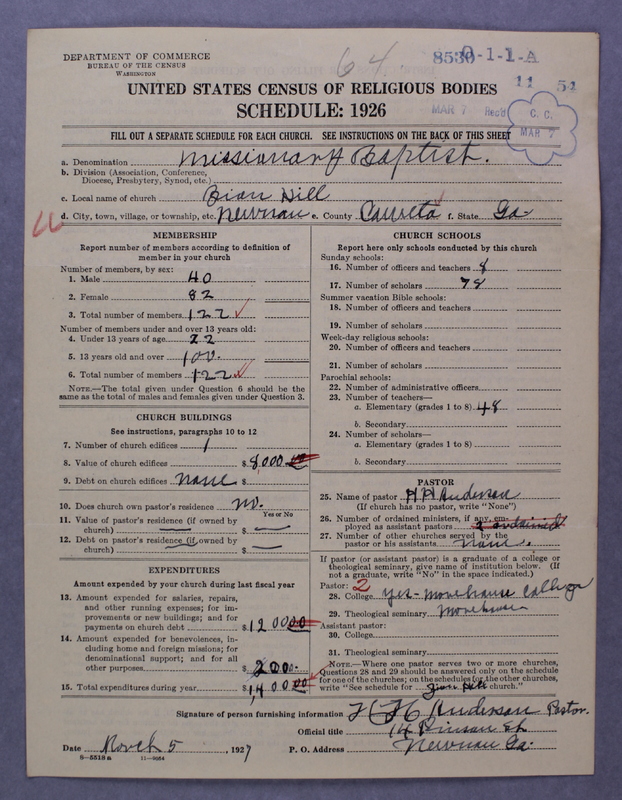 64
8530 0-1-1-A
DEPARTMENT OF COMMERCE
BUREAU OF THE CENSUS
WASHINGTON
11 54
UNITED STATES CENSUS OF RELIGIOUS BODIES
SCHEDULE: 1926
MAR 7 Rec'd
C. C.
MAR 7
FILL OUT A SEPARATE SCHEDULE FOR EACH CHURCH. SEE INSTRUCTIONS ON THE BACK OF THIS SHEET
a. Denomination Missionary Baptist.
b. Division (Association, Conference,
Diocese, Presbytery, Synod, etc.)
c. Local name of church Hill
d. City, town, village, or township, etc. Newnan e. County Caweta f. State Ga
MEMBERSHIP
Report number of members according to definition of
member in your church
Number of members, by sex:
1. Male 40
2. Female 82
3. Total number of members 122
Number of members under and over 13 years old:
4. Under 13 years of age 22
5. 13 years old and over 100.
6. Total number of members 122
NOTE.—The total given under Question 6 should be the
same as the total of males and females given under Question 3.
CHURCH BUILDINGS
See instructions, paragraphs 10 to 12
7. Number of church edifices 1
8. Value of church edifices $8,000
9. Debt on church edifices None $
10. Does church own pastor's residence? no.
Yes or No
11. Value of pastor's residence (if owned by
church) — $ —
12. Debt on pastor's residence (if owned by
church) — $ —
EXPENDITURES
Amount expended by your church during last fiscal year
13. Amount expended for salaries, repairs,
and other running expenses; for im-
provements or new buildings; and for
payments on church debt $1200 00
14. Amount expended for benevolences, in-
cluding home and foreign missions; for
denominational support; and for all
other purposes $200.
15. Total expenditures during year $1,400 00
CHURCH SCHOOLS
Report here only schools conducted by this church
Sunday schools:
16. Number of officers and teachers 8
17. Number of scholars 78
Summer vacation Bible schools:
18. Number of officers and teachers
19. Number of scholars
Week-day religious schools:
20. Number of officers and teachers
21. Number of scholars
Parochial schools:
22. Number of administrative officers
23. Number of teachers—
a. Elementary (grades 1 to 8) 48
b. Secondary
24. Number of scholars—
a. Elementary (grades 1 to 8)
b. Secondary
PASTOR
25. Name of pastor H H Anderson
(If church has no pastor, write "None")
26. Number of ordained ministers, if any, em-
ployed as assistant pastors 2 ordained
27. Number of other churches served by the
pastor or his assistants None.
If pastor (or assistant pastor) is a graduate of a college or
theological seminary, give name of institution below. (If
not a graduate, write "No" in the space indicated.)
Pastor: 2
28. College yes - Morehouse College
29. Theological seminary Morehouse
Assistant pastor:
30. College
31. Theological seminary
NOTE.—Where one pastor serves two or more churches,
Questions 28 and 29 should be answered only on the schedule
for one of the churches; on the schedules for the other churches,
write "See schedule for Hill church."
Signature of person furnishing information H H Anderson Pastor.
Official title 14 Pinson St
Date March 5, 1927 P. O. Address Newnan Ga.
8—5518 a 11—9064